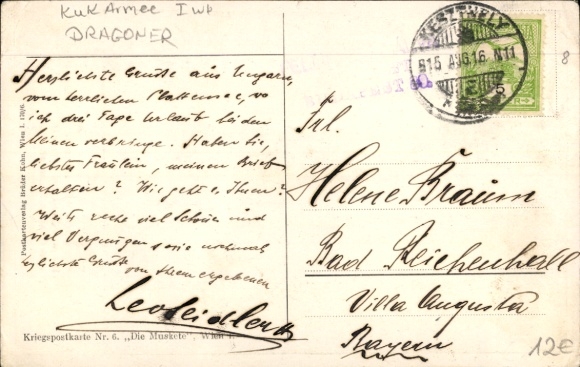 KuK Armee I WK
DRAGONER
KESZTHELY
915 AUG 16 N11
8
Herzlichste Grüße aus Ungarn,
vom herrlichen Plattensee, wo
ich drei Tage Urlaub bei den
Meinen verbringe. Haben Sie,
liebstes Fräulein, meinen Brief
erhalten? Wie geht es Ihnen?
recht viel Schönes und
viel Vergnügen sowie nochmals
herzlichste Grüße
von Ihrem ergebenen
Leo Seidler
Frl.
Helene Braun
Bad Reichenhall
Villa Augusta
Bayern
12€
Postkartenverlag Brüder Kohn, Wien I.
Kriegspostkarte Nr. 6. „Die Muskete", Wien